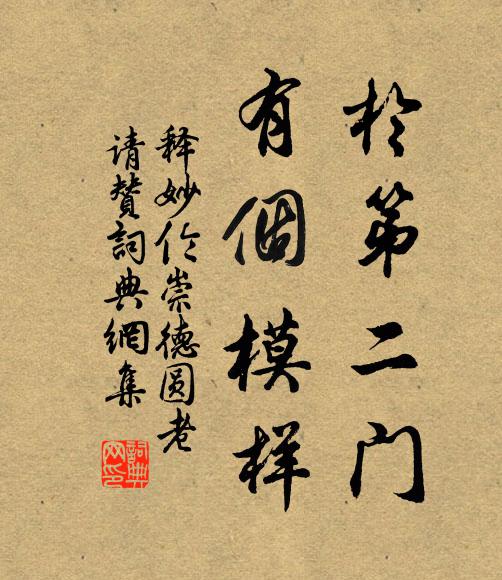 於第二门
有個模样
释妙伦崇德圆老
请赞詞典網集
詞典网印